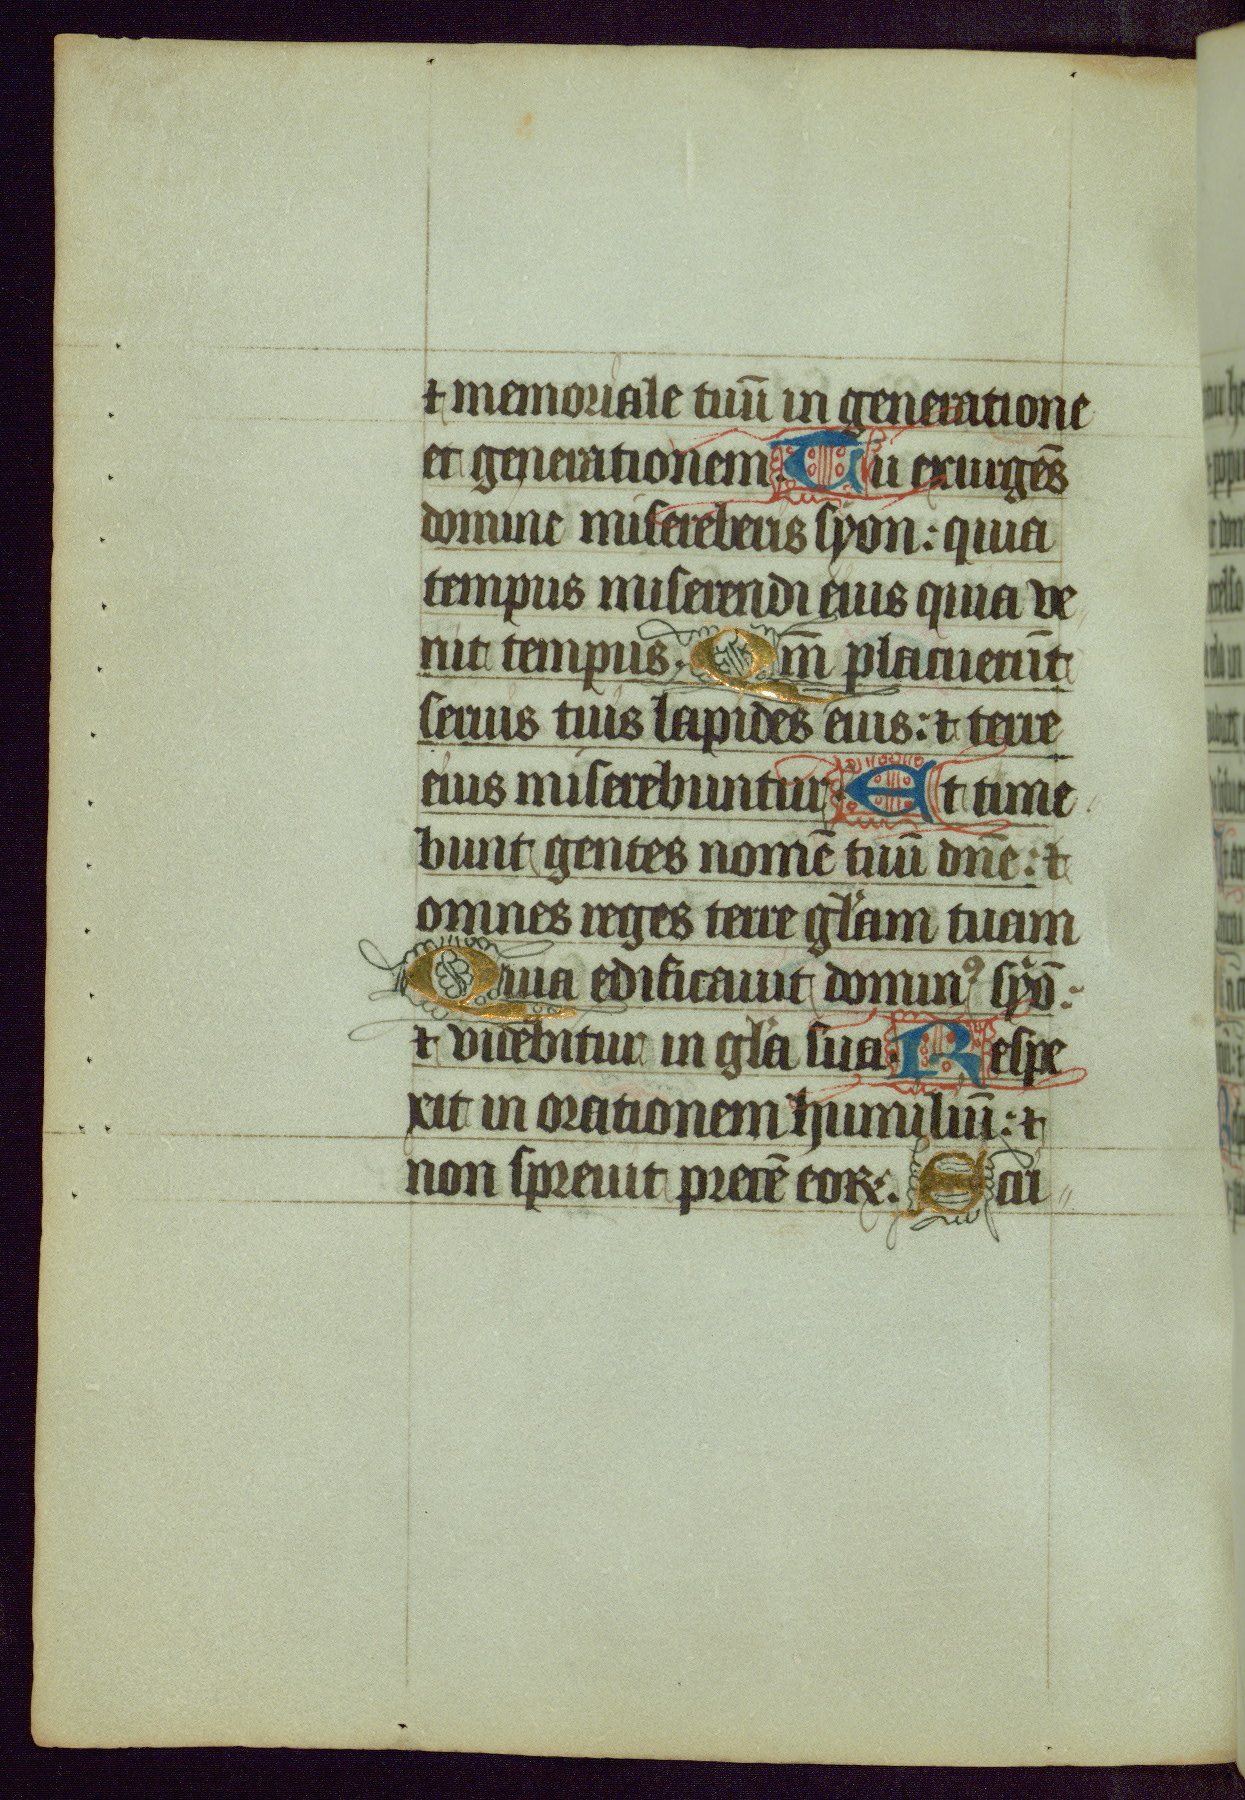 ⁊ memoriale tuū in generatione
et generationem. Tu exurgēs
domine misereberis syon: quia
tempus miserendi eius quia ve
nit tempus. Qm̄ placuerūt
seruis tuis lapides eius: ⁊ terre
eius miserebuntur. Et time
bunt gentes nomē tuū dn̄e: ⁊
omnes reges terre glām tuam
Quia edificauit dominꝰ syō:
⁊ videbitur in glā sua. Respe
xit in orationem humiliū: ⁊
non spreuit precē eoꝝ. Scri